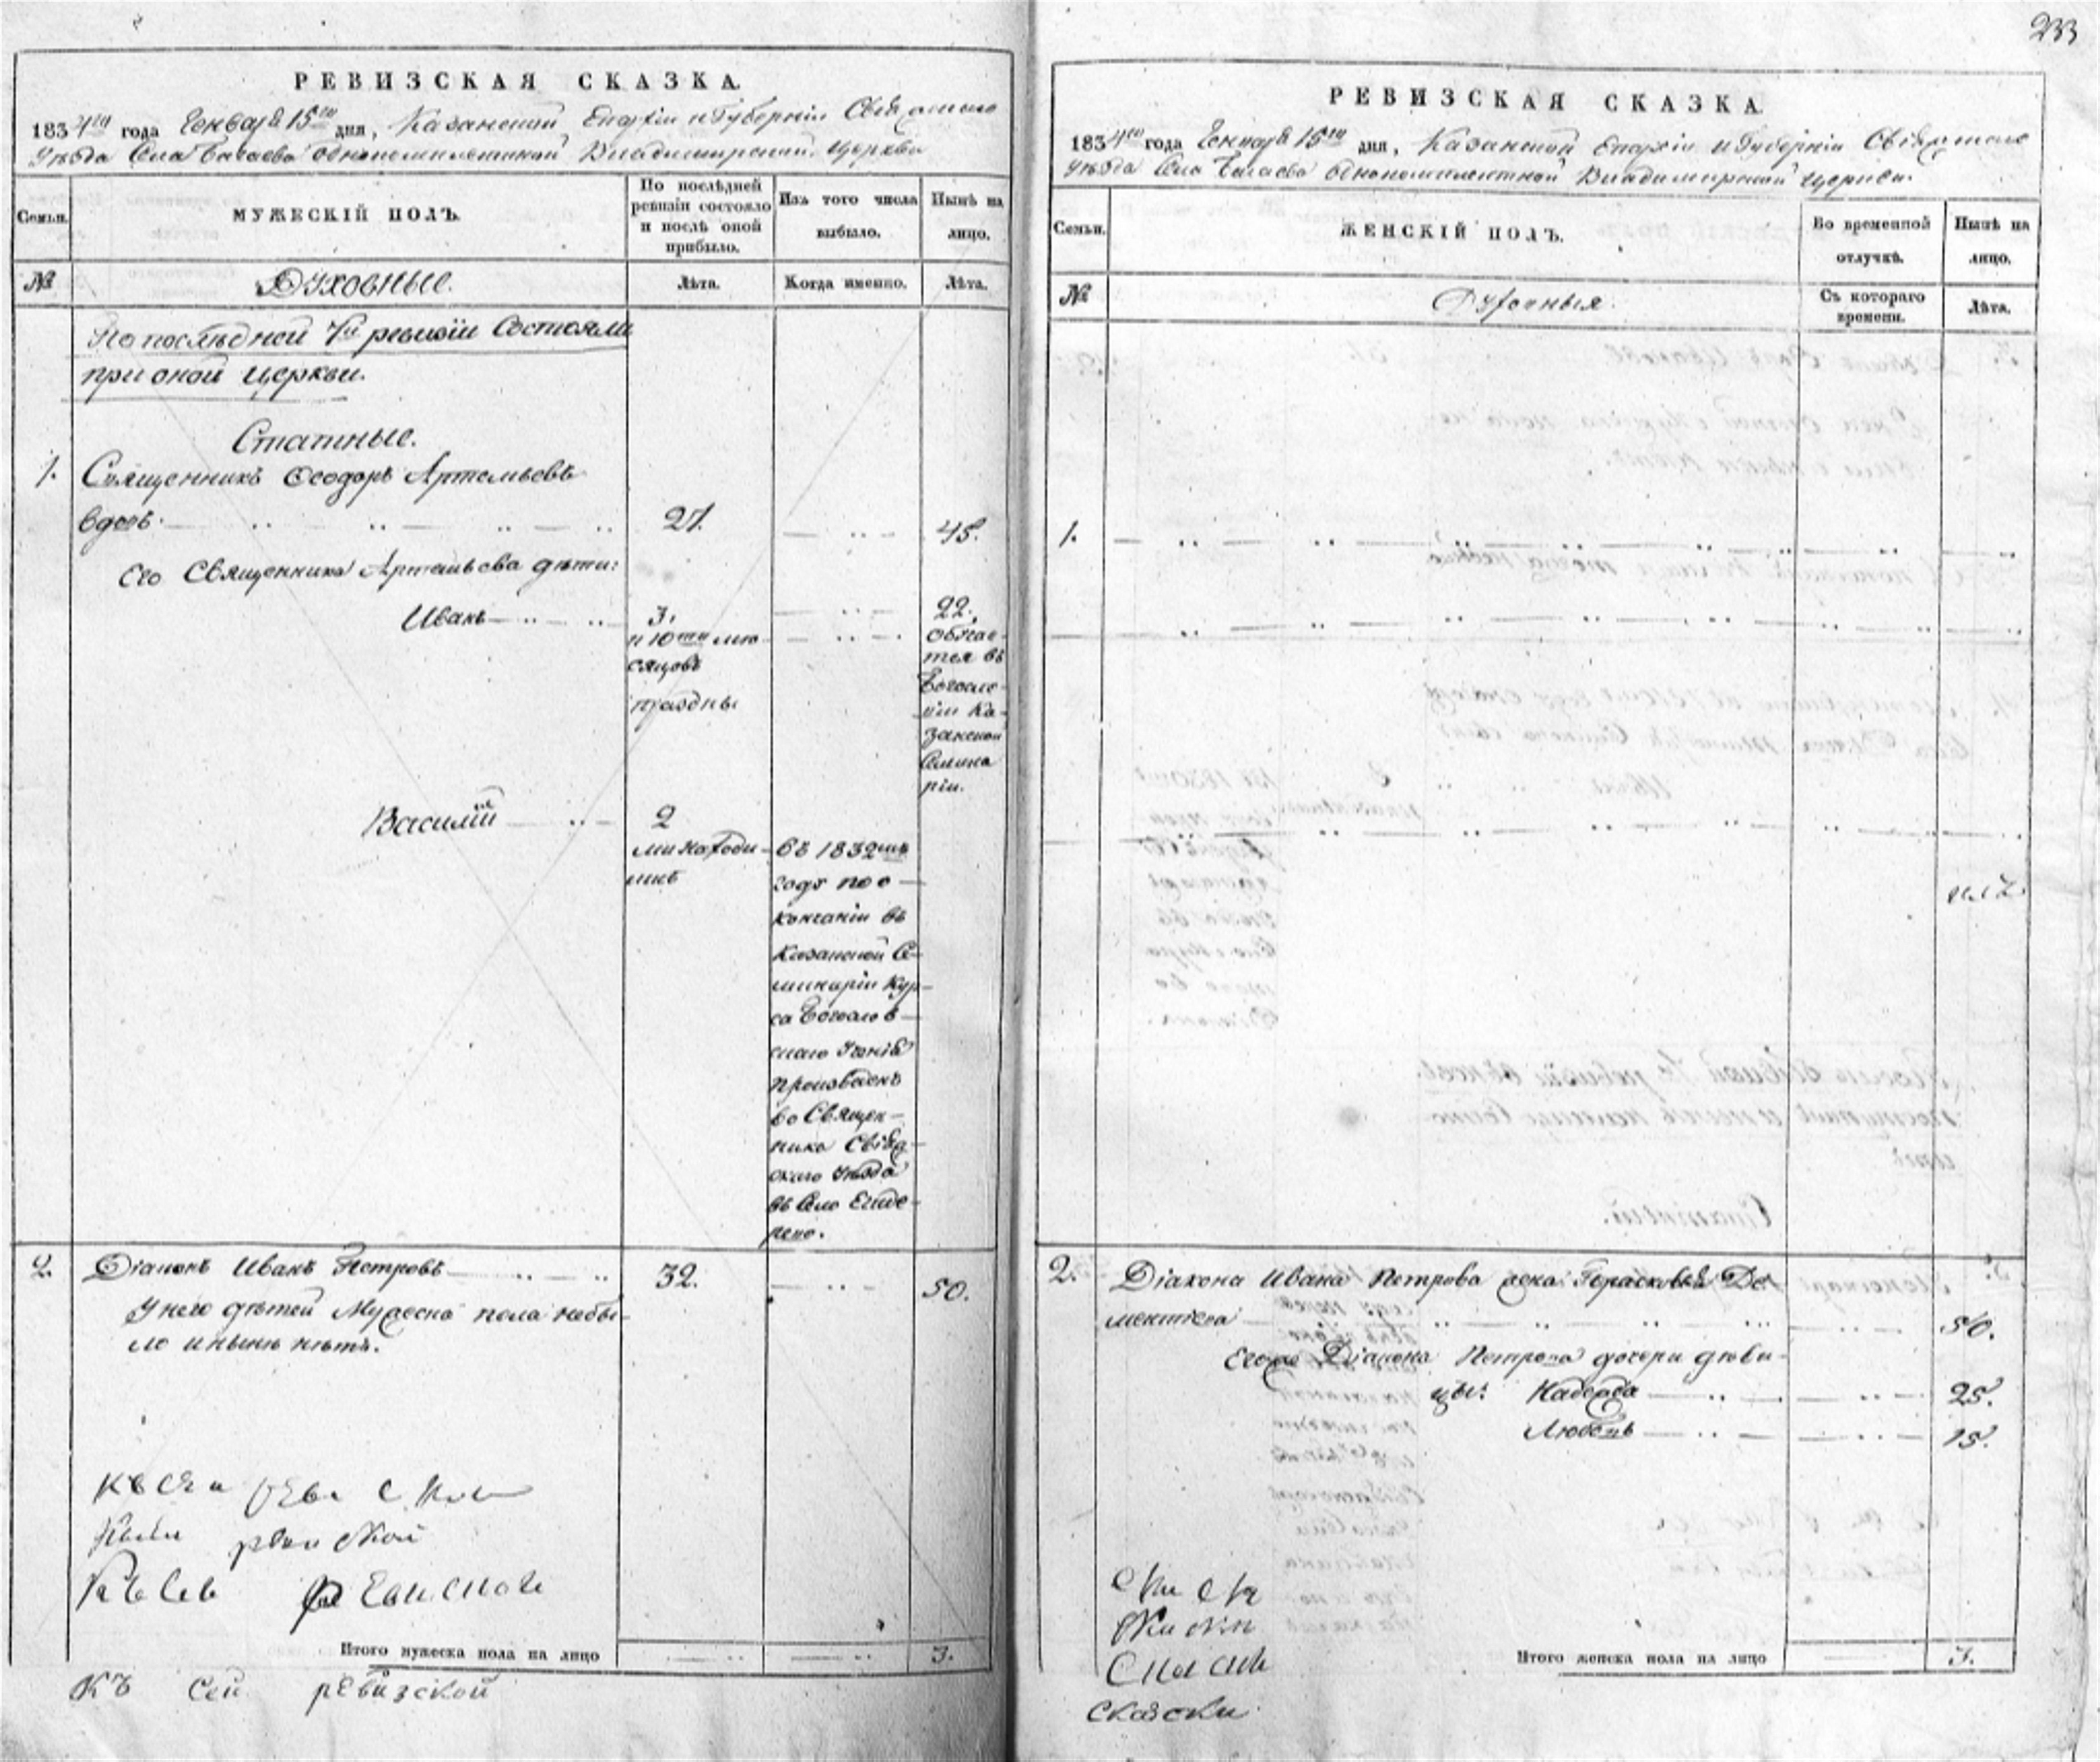 233
РЕВИЗСКАЯ СКАЗКА.
1834го года Генваря 15го дня, Казанской Епархіи и Губерніи Свіяжскаго
Уѣзда Села Багаева однокомплектной Владимирской церкви
Семьи.
МУЖЕСКІЙ ПОЛЪ.
По послѣдней ревизіи состояло и послѣ оной прибыло.
Изъ того числа выбыло.
Нынѣ на лицо.
№
Духовные.
Лѣта.
Когда именно.
Лѣта.
По послѣдней 7й ревизіи состояли
при оной церкви.
Статные.
1. Священникъ Ѳеодоръ Артемьевъ
вдовъ 27. 45.
Его Священника Артемьева дѣти:
Иванъ 3. 22.
и 10ти мѣ-
сяцовъ
обучае-
тся въ
Богосло-
віи Ка-
занской
Семина
ріи.
Василій 2
въ 1832мъ
году по о-
кончаніи въ
Казанской Се-
минаріи кур-
са Богослов-
скаго Ученія
произведенъ
во Священ-
ника Свіяж-
скаго Уѣзда
въ село
2. Діаконъ Иванъ Петровъ 32. 50.
У него дѣтей мужеска пола небы-
ло и нынѣ нѣтъ.
Къ сей ревизской
Итого мужеска пола на лицо 3.
Къ сей ревизской
РЕВИЗСКАЯ СКАЗКА
1834го года Генваря 15го дня, Казанской Епархіи и Губерніи Свіяжскаго
Уѣзда Села Багаева однокомплектной Владимирской церкви.
Семьи.
ЖЕНСКІЙ ПОЛЪ.
Во временной отлучкѣ.
Нынѣ на лицо.
№
Духовныя.
Съ котораго времени.
Лѣта.
1.
2. Діакона Ивана Петрова жена Парасковья Де-
ментіева 50.
Егоже Діакона Петрова дочери дѣви-
цы: Надежда 25.
Любовь 15.
Итого женска пола на лицо 3.
сказки